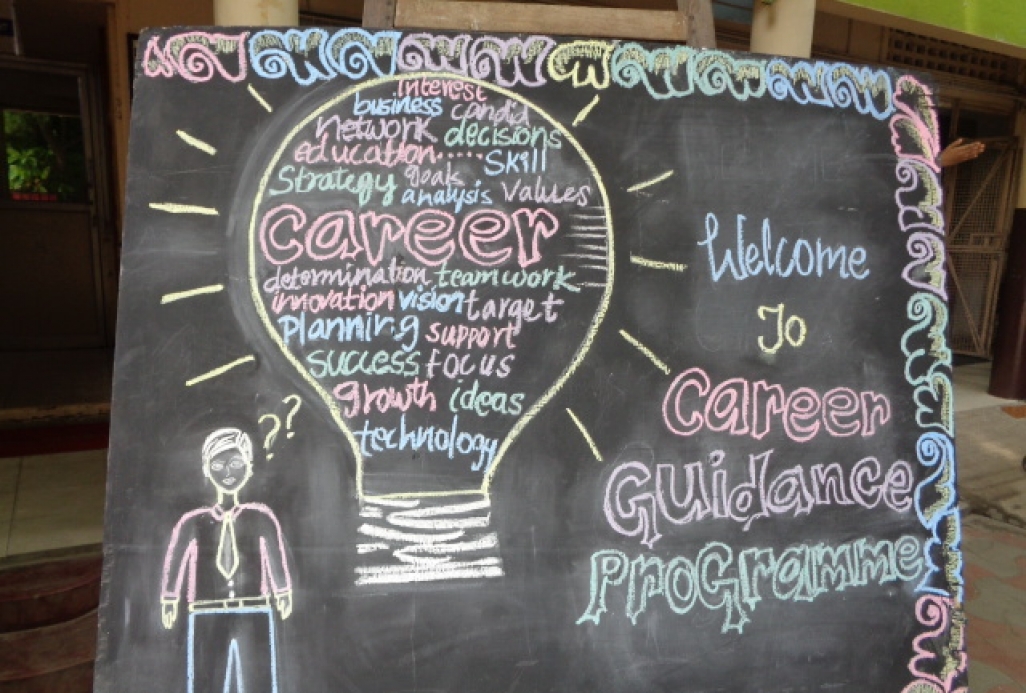 interest
business candid
network decisions
education..... Skill
Strategy goak
analysis values
career
determination teamwork
innovation vision target
planning support
success focus
growth ideas
technology
??
Welcome
To
Career
Guidance
Programme